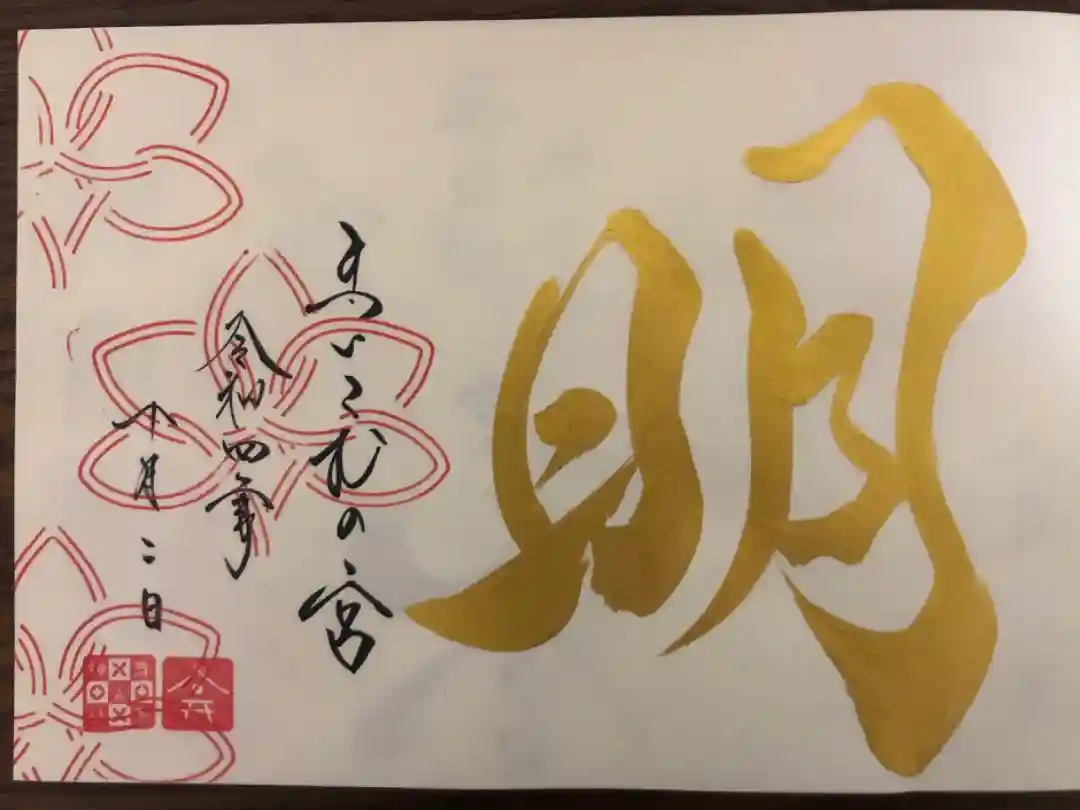 明
まいこむの宮
令和四年
十月二日